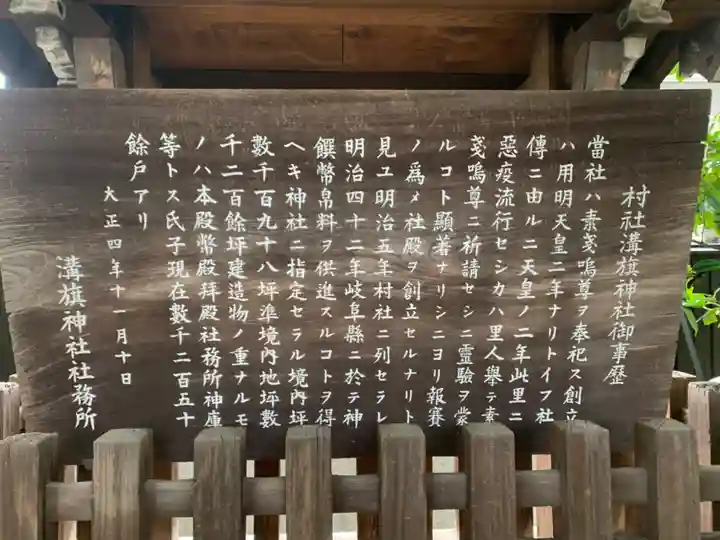 村社溝旗神社御事歴
當社ハ素戔嗚尊ヲ奉祀ス創立
ハ用明天皇二年ナリトイフ社
傳ニ由ルニ天皇ノ二年此里ニ
惡疫流行セシカハ里人舉テ素
戔嗚尊ニ祈請セシニ靈驗ヲ蒙
ルコト顯著ナリシニヨリ報賽
ノ爲メ社殿ヲ創立セルナリト
見ユ明治五年村社ニ列セラレ
明治四十二年岐阜縣ニ於テ神
饌幣帛料ヲ供進スルコトヲ得
ヘキ神社ニ指定セラル境內坪
數千百九十八坪準境內地坪數
千二百餘坪建造物ノ重ナルモ
ノハ本殿幣殿拜殿社務所神庫
等トス氏子現在數千二百五十
餘戸アリ
大正四年十一月十日
溝旗神社社務所